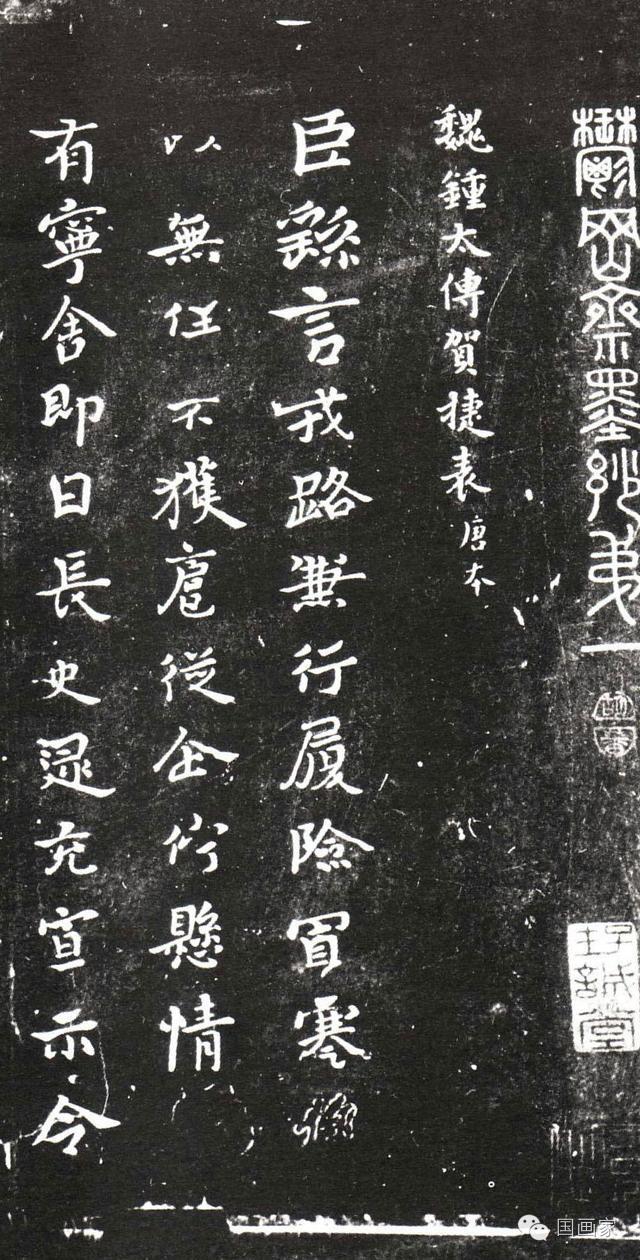 鬱岡齋墨妙弟一
魏鍾太傅賀捷表唐本
臣繇言戎路兼行履險冒寒
以無任不獲扈從企佇懸情
有寧舍即日長史逯充宣示令
国画家